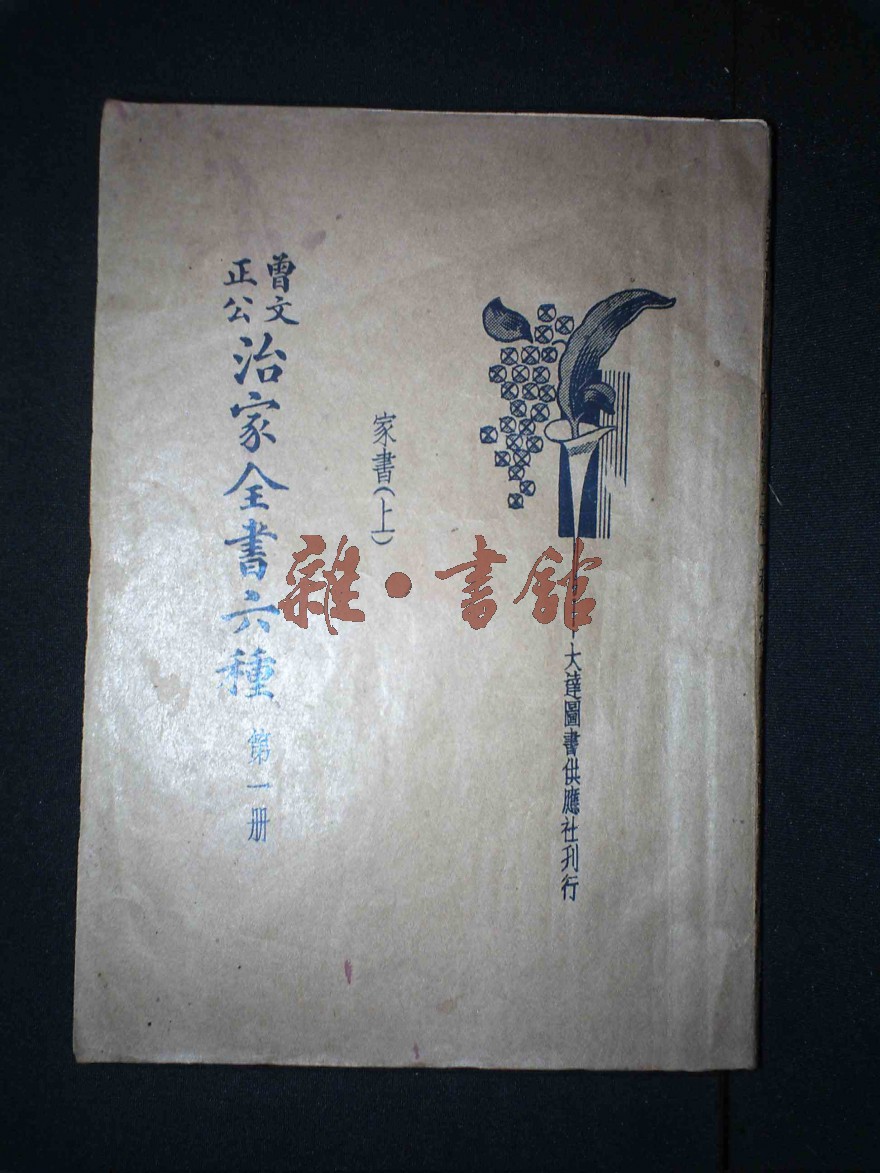 曾文正公治家全書六種 第一册
家書(上)
大達圖書供應社刊行
雜·書館